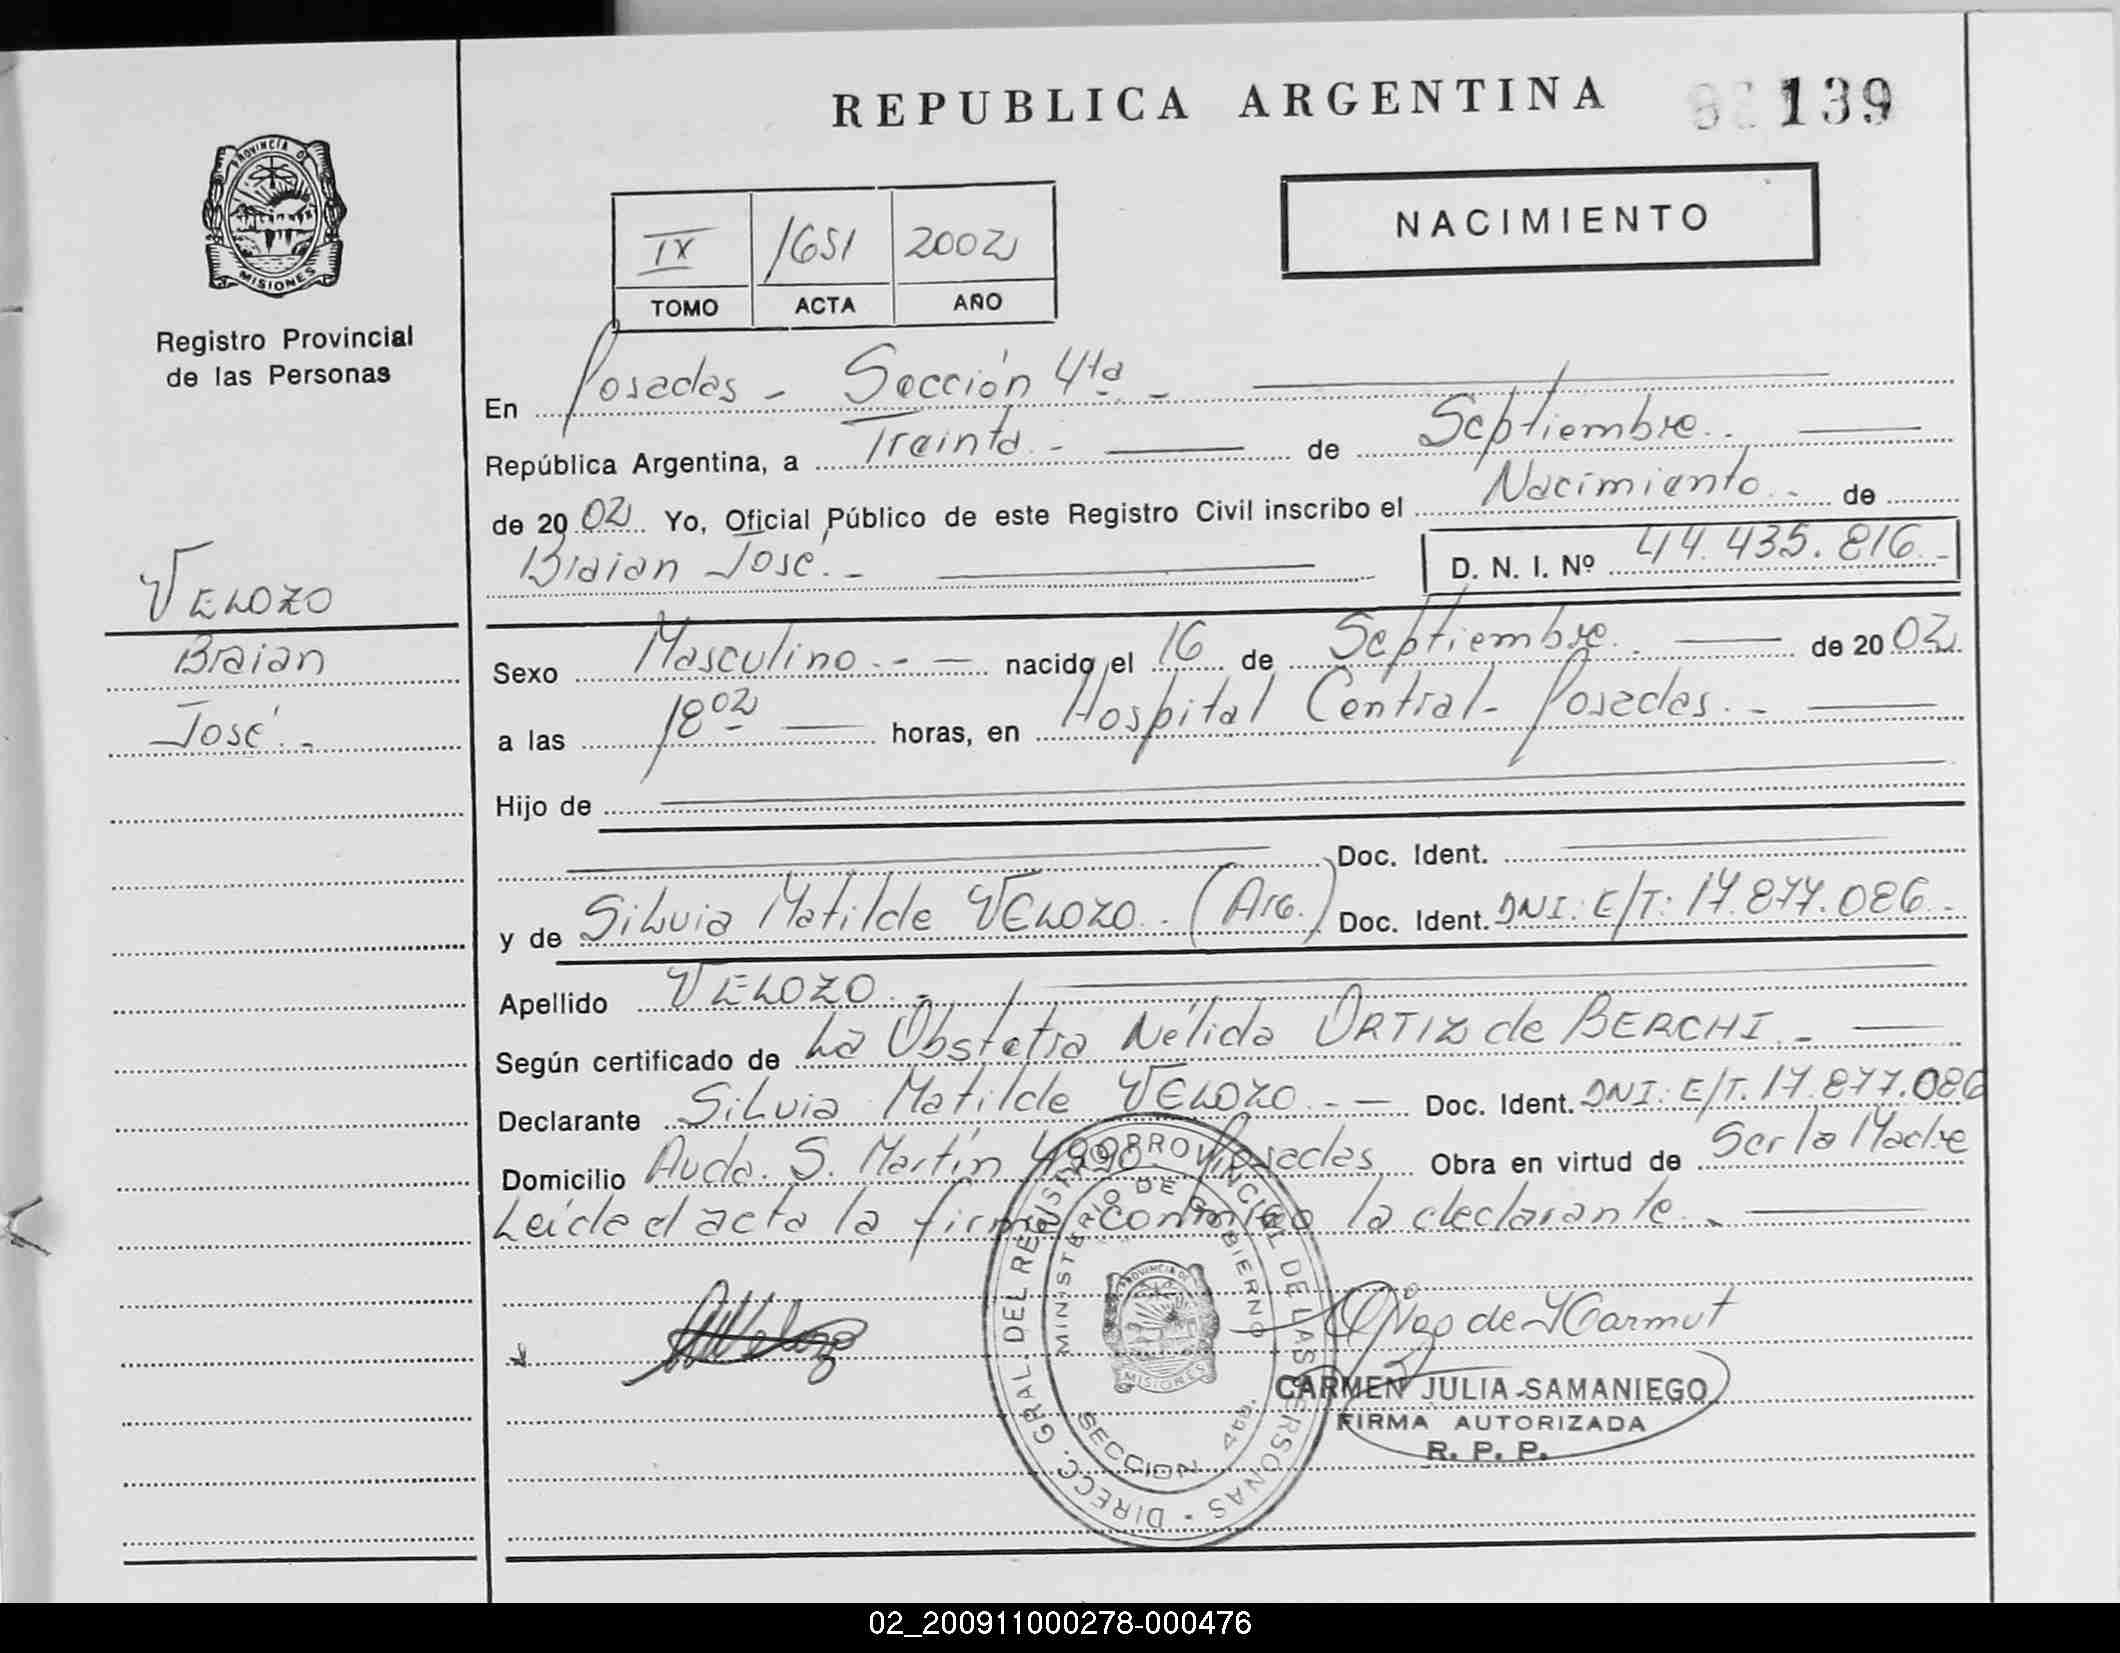 REPUBLICA ARGENTINA
139
PROVINCIA DE
MISIONES
Registro Provincial
de las Personas
IX 1651 2002
TOMO ACTA AÑO
NACIMIENTO
En Posadas - Sección 4ta. -
República Argentina, a Treinta. - de Septiembre.
de 2002 Yo, Oficial Público de este Registro Civil inscribo el Nacimiento. - de
Braian José. - D. N. I. Nº 44.435.816. -
VELOZO
Braian
José. -
Sexo Masculino. - - nacido el 16 de Septiembre. de 2002
a las 18 02 horas, en Hospital Central - Posadas. -
Hijo de
Doc. Ident.
y de Silvia Matilde VELOZO. (Arg.) Doc. Ident. DNI: E/T: 17.877.086. -
Apellido VELOZO. -
Según certificado de La Obstetra Nélida ORTIZ de BERCHI. -
Declarante Silvia Matilde VELOZO. - - Doc. Ident. DNI: E/T. 17.877.086
Domicilio Avda. S. Martín 4990. Posadas Obra en virtud de Ser la Madre
Leída el acta la firma conmigo la declarante. -
DIRECC. GRAL. DEL REGISTRO PROVINCIAL DE LAS PERSONAS -
MINISTERIO DE GOBIERNO
SECCION 4ta.
PROVINCIA DE
MISIONES
CARMEN JULIA SAMANIEGO
FIRMA AUTORIZADA
R. P. P.
02_200911000278-000476